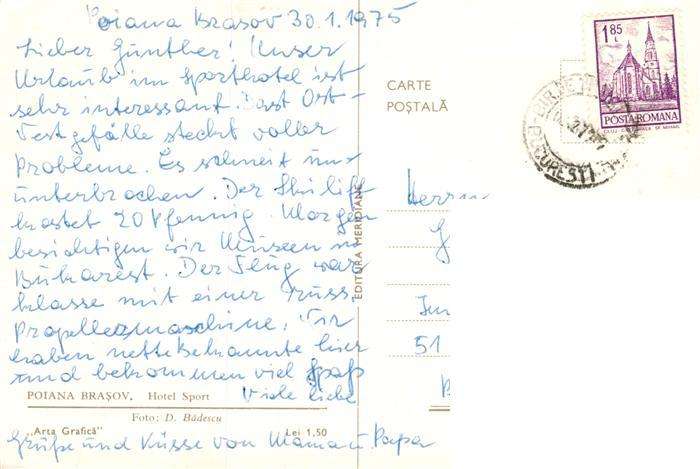 Poiana Brasov 30.1.1975
Lieber Günther! Unser
Urlaub im Sporthotel ist
sehr interessant. Das Ost-
Westgefälle steckt voller
Probleme. Es schneit unun-
terbrochen. Der Skilift
kostet 20 Pfennig. Morgen
besichtigen wir Museen in
Bukarest. Der Flug war
klasse mit einer russ.
Propellermaschine. Wir
haben nette Bekannte hier
und bekommen viel Spaß
Viele liebe
Grüße und Küsse von Mama u. Papa
POIANA BRAȘOV, Hotel Sport
Foto: D. Bădescu
"Arta Grafică" Lei 1,50
EDITURA MERIDIANE
CARTE
POȘTALĂ
1.85 L
POSTA ROMANA
BUCURESTI
Herrn
G
51